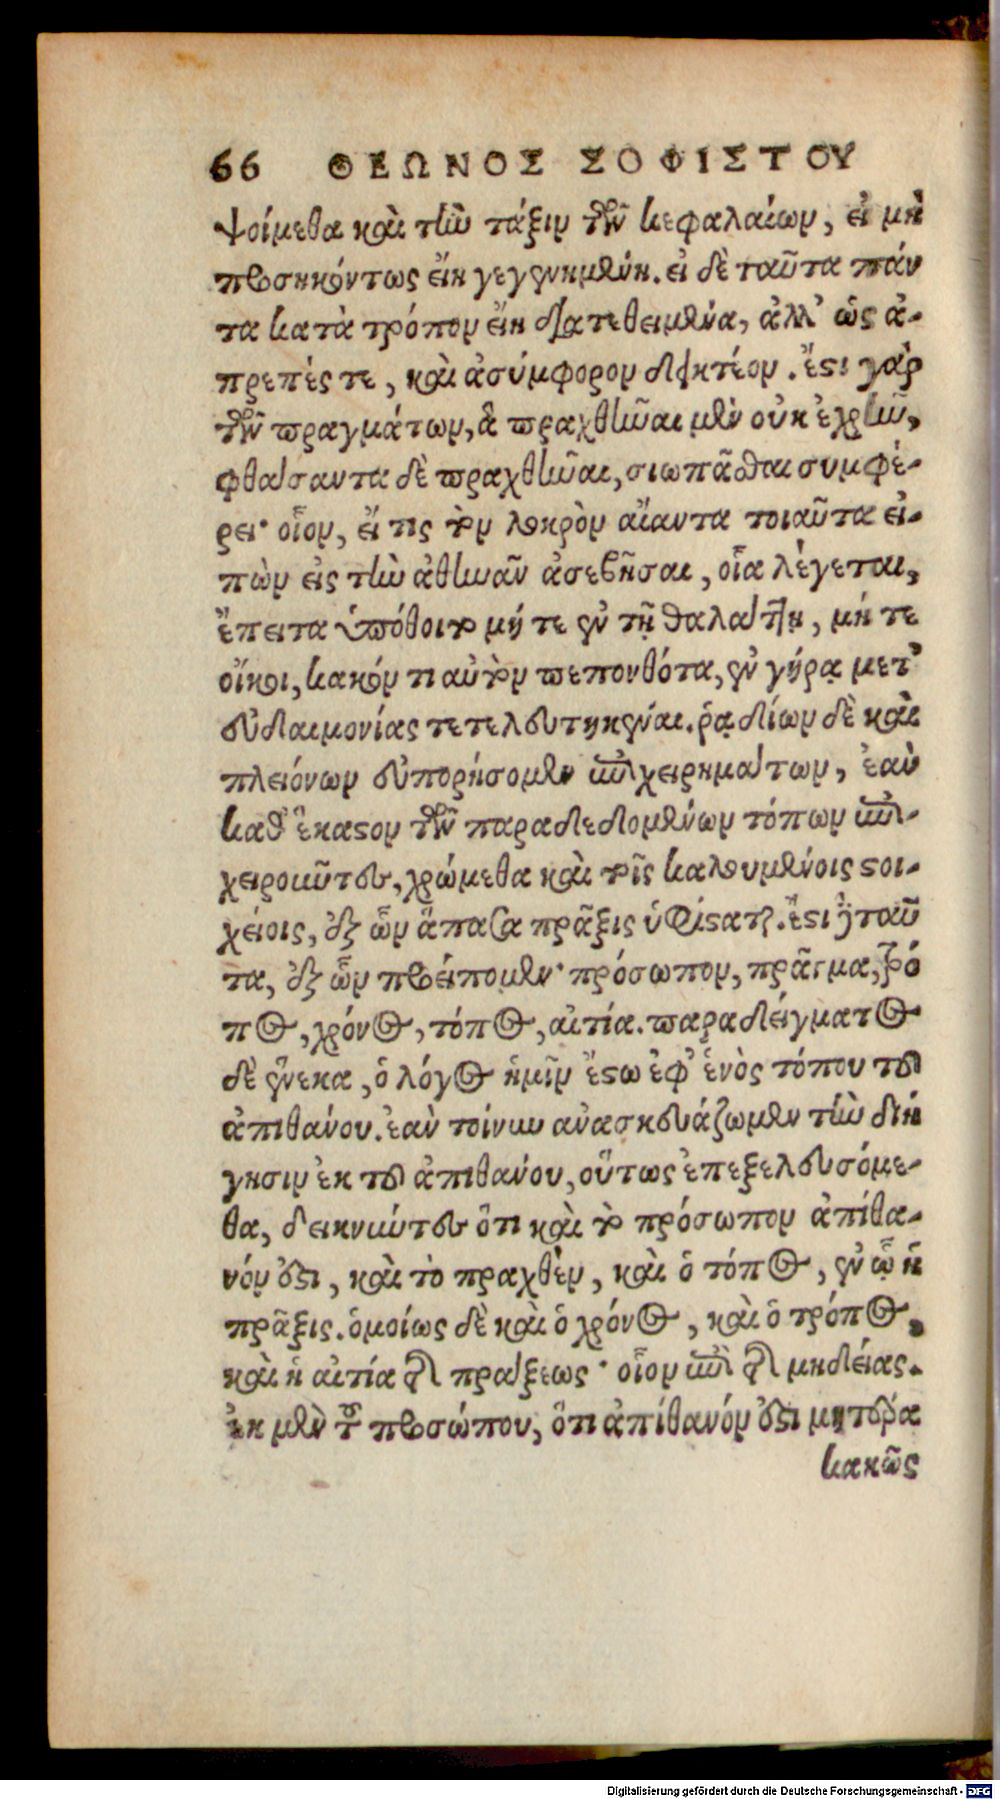 66 ΘΕΩΝΟΣ ΣΟΦΙΣΤΟΥ
ψοίμεθα καὶ τὴν τάξιν τῶν κεφαλαίων, εἰ μὴ
προσηκόντως εἴη γεγενημένη. εἰ δὲ ταῦτα πάν
τα κατὰ τρόπον εἴη διατεθειμένα, ἀλλ' ὡς ἀ-
πρεπές τε, καὶ ἀσύμφορον λεκτέον. ἔστι γὰρ
τῶν πραγμάτων, ἃ πραχθῆναι μὲν οὐκ ἐχρῆν,
φθάσαντα δὲ πραχθῆναι, σιωπᾶσθαι συμφέ-
ρει· οἷον, εἴ τις τὸν λοκρὸν αἴαντα τοιαῦτα εἰ-
πὼν εἰς τὴν ἀθηνᾶν ἀσεβῆσαι, οἷα λέγεται,
ἔπειτα ὑπόθοιτο μή τε ἐν τῇ θαλάττῃ, μή τε
οἴκοι, κακόν τι αὐτὸν πεπονθότα, ἐν γήρᾳ μετ'
εὐδαιμονίας τετελευτηκέναι. ῥᾳδίων δὲ καὶ
πλειόνων εὐπορήσομεν ἐπιχειρημάτων, ἐὰν
καθ' ἕκαστον τῶν παραδεδομένων τόπων ἐπι-
χειροῦντες, χρώμεθα καὶ τοῖς καλουμένοις στοι-
χείοις, ἐξ ὧν ἅπασα πρᾶξις ὑφίσταται. ἔστι δὲ ταῦ
τα, ἐξ ὧν προείπομεν· πρόσωπον, πρᾶγμα, τρό
πος, χρόνος, τόπος, αἰτία. παραδείγματος
δὲ ἕνεκα, ὁ λόγος ἡμῖν ἔστω ἐφ' ἑνὸς τόπου τοῦ
ἀπιθάνου. ἐὰν τοίνυν ἀνασκευάζωμεν τὴν διή
γησιν ἐκ τοῦ ἀπιθάνου, οὕτως ἐπεξελευσόμε-
θα, δεικνύντες ὅτι καὶ τὸ πρόσωπον ἀπίθα-
νόν ἐστι, καὶ τὸ πραχθὲν, καὶ ὁ τόπος, ἐν ᾧ ἡ
πρᾶξις. ὁμοίως δὲ καὶ ὁ χρόνος, καὶ ὁ τρόπος,
καὶ ἡ αἰτία τῆς πράξεως· οἷον ἐπὶ τῆς μηδείας.
ἐκ μὲν τοῦ προσώπου, ὅτι ἀπίθανόν ἐστι μητέρα
κακῶς
Digitalisierung gefördert durch die Deutsche Forschungsgemeinschaft - DFG